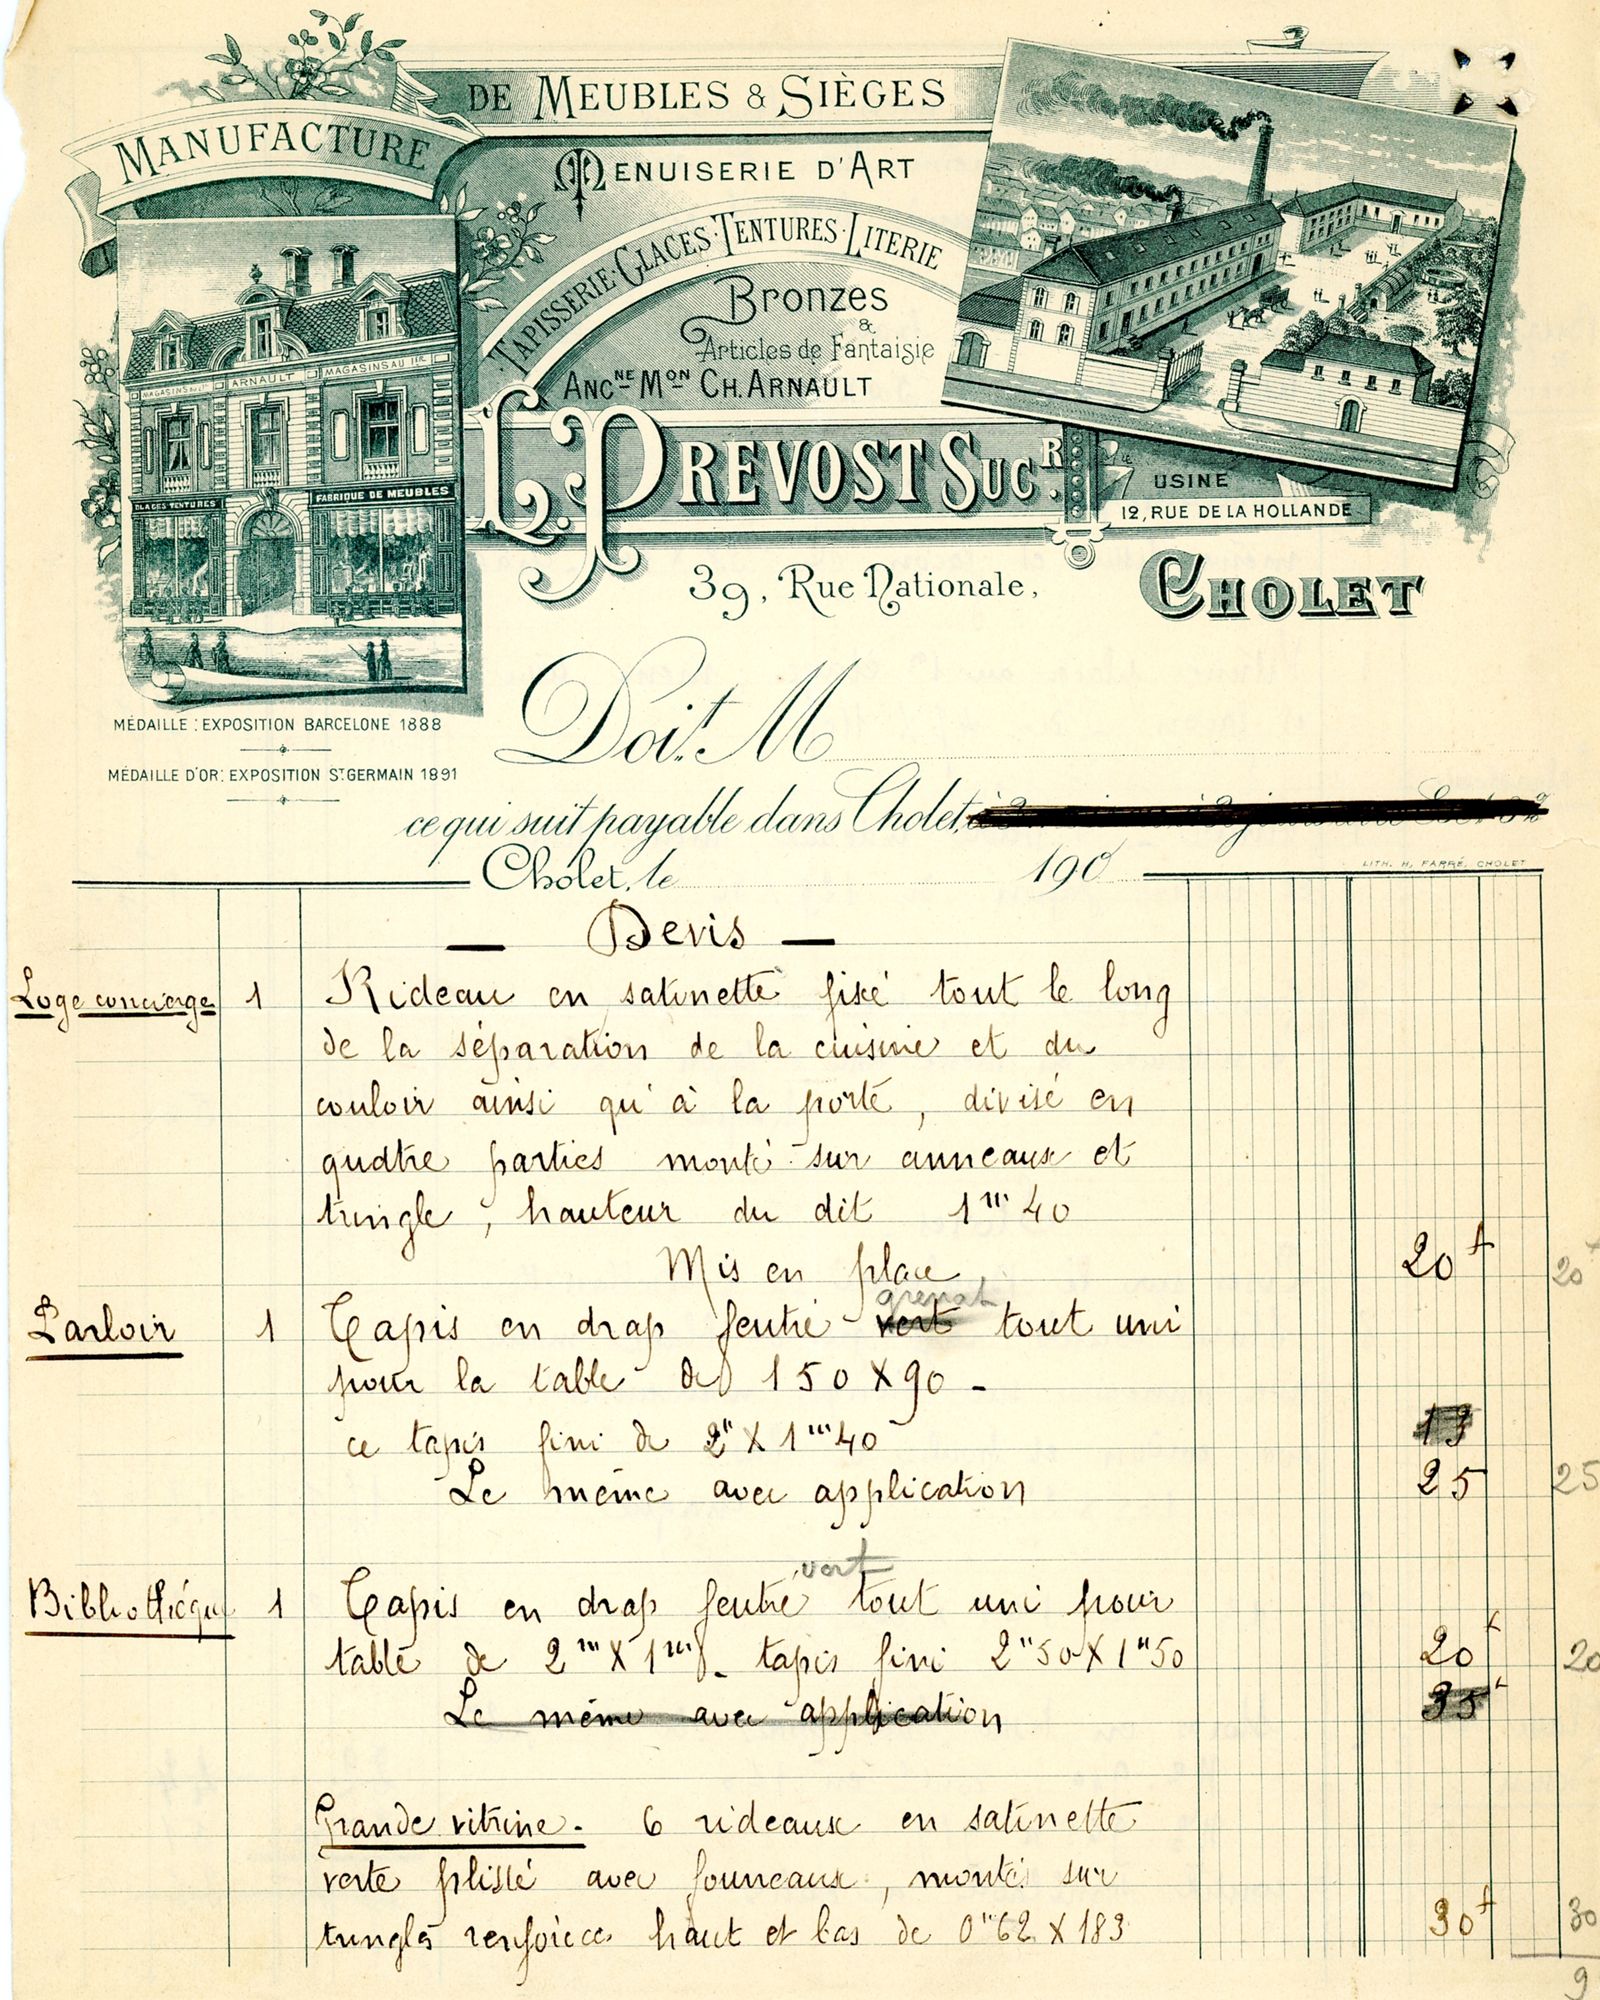 MANUFACTURE
DE MEUBLES & SIÈGES
MENUISERIE D'ART
TAPISSERIE·GLACES·TENTURES·LITERIE
Bronzes
&
Articles de Fantaisie
ANCNE MON CH. ARNAULT
L. PREVOST SUCR.
USINE
12, RUE DE LA HOLLANDE
39, Rue Nationale, CHOLET
MAGASINS AU 1ER ARNAULT MAGASINS AU 1ER
GLACES TENTURES FABRIQUE DE MEUBLES
MÉDAILLE : EXPOSITION BARCELONE 1888
MÉDAILLE D'OR : EXPOSITION ST GERMAIN 1891
Doit M
ce qui suit payable dans Cholet,
LITH. H. FARRÉ, CHOLET
Cholet, le 190
— Devis —
Loge concierge 1 Rideau en satinette fixé tout le long
de la séparation de la cuisine et du
couloir ainsi qu'à la porte, divisé en
quatre parties monté sur anneaux et
tringle, hauteur du dit 1m 40
Mis en place 20f 20f
grenat
Parloir 1 Tapis en drap feutré vert tout uni
pour la table de 150 X 90 -
ce tapis fini de 2m X 1m 40 13
Le même avec application 25 25
vert
Bibliothèque 1 Tapis en drap feutré tout uni pour
table de 2m X 1m - tapis fini 2m50 X 1m50 20f 20
Le même avec application 35f
Grande vitrine - 6 rideaux en satinette
verte plissé avec fourreaux, montés sur
tringles renforcée haut et bas de 0m62 X 183 30f 30
9